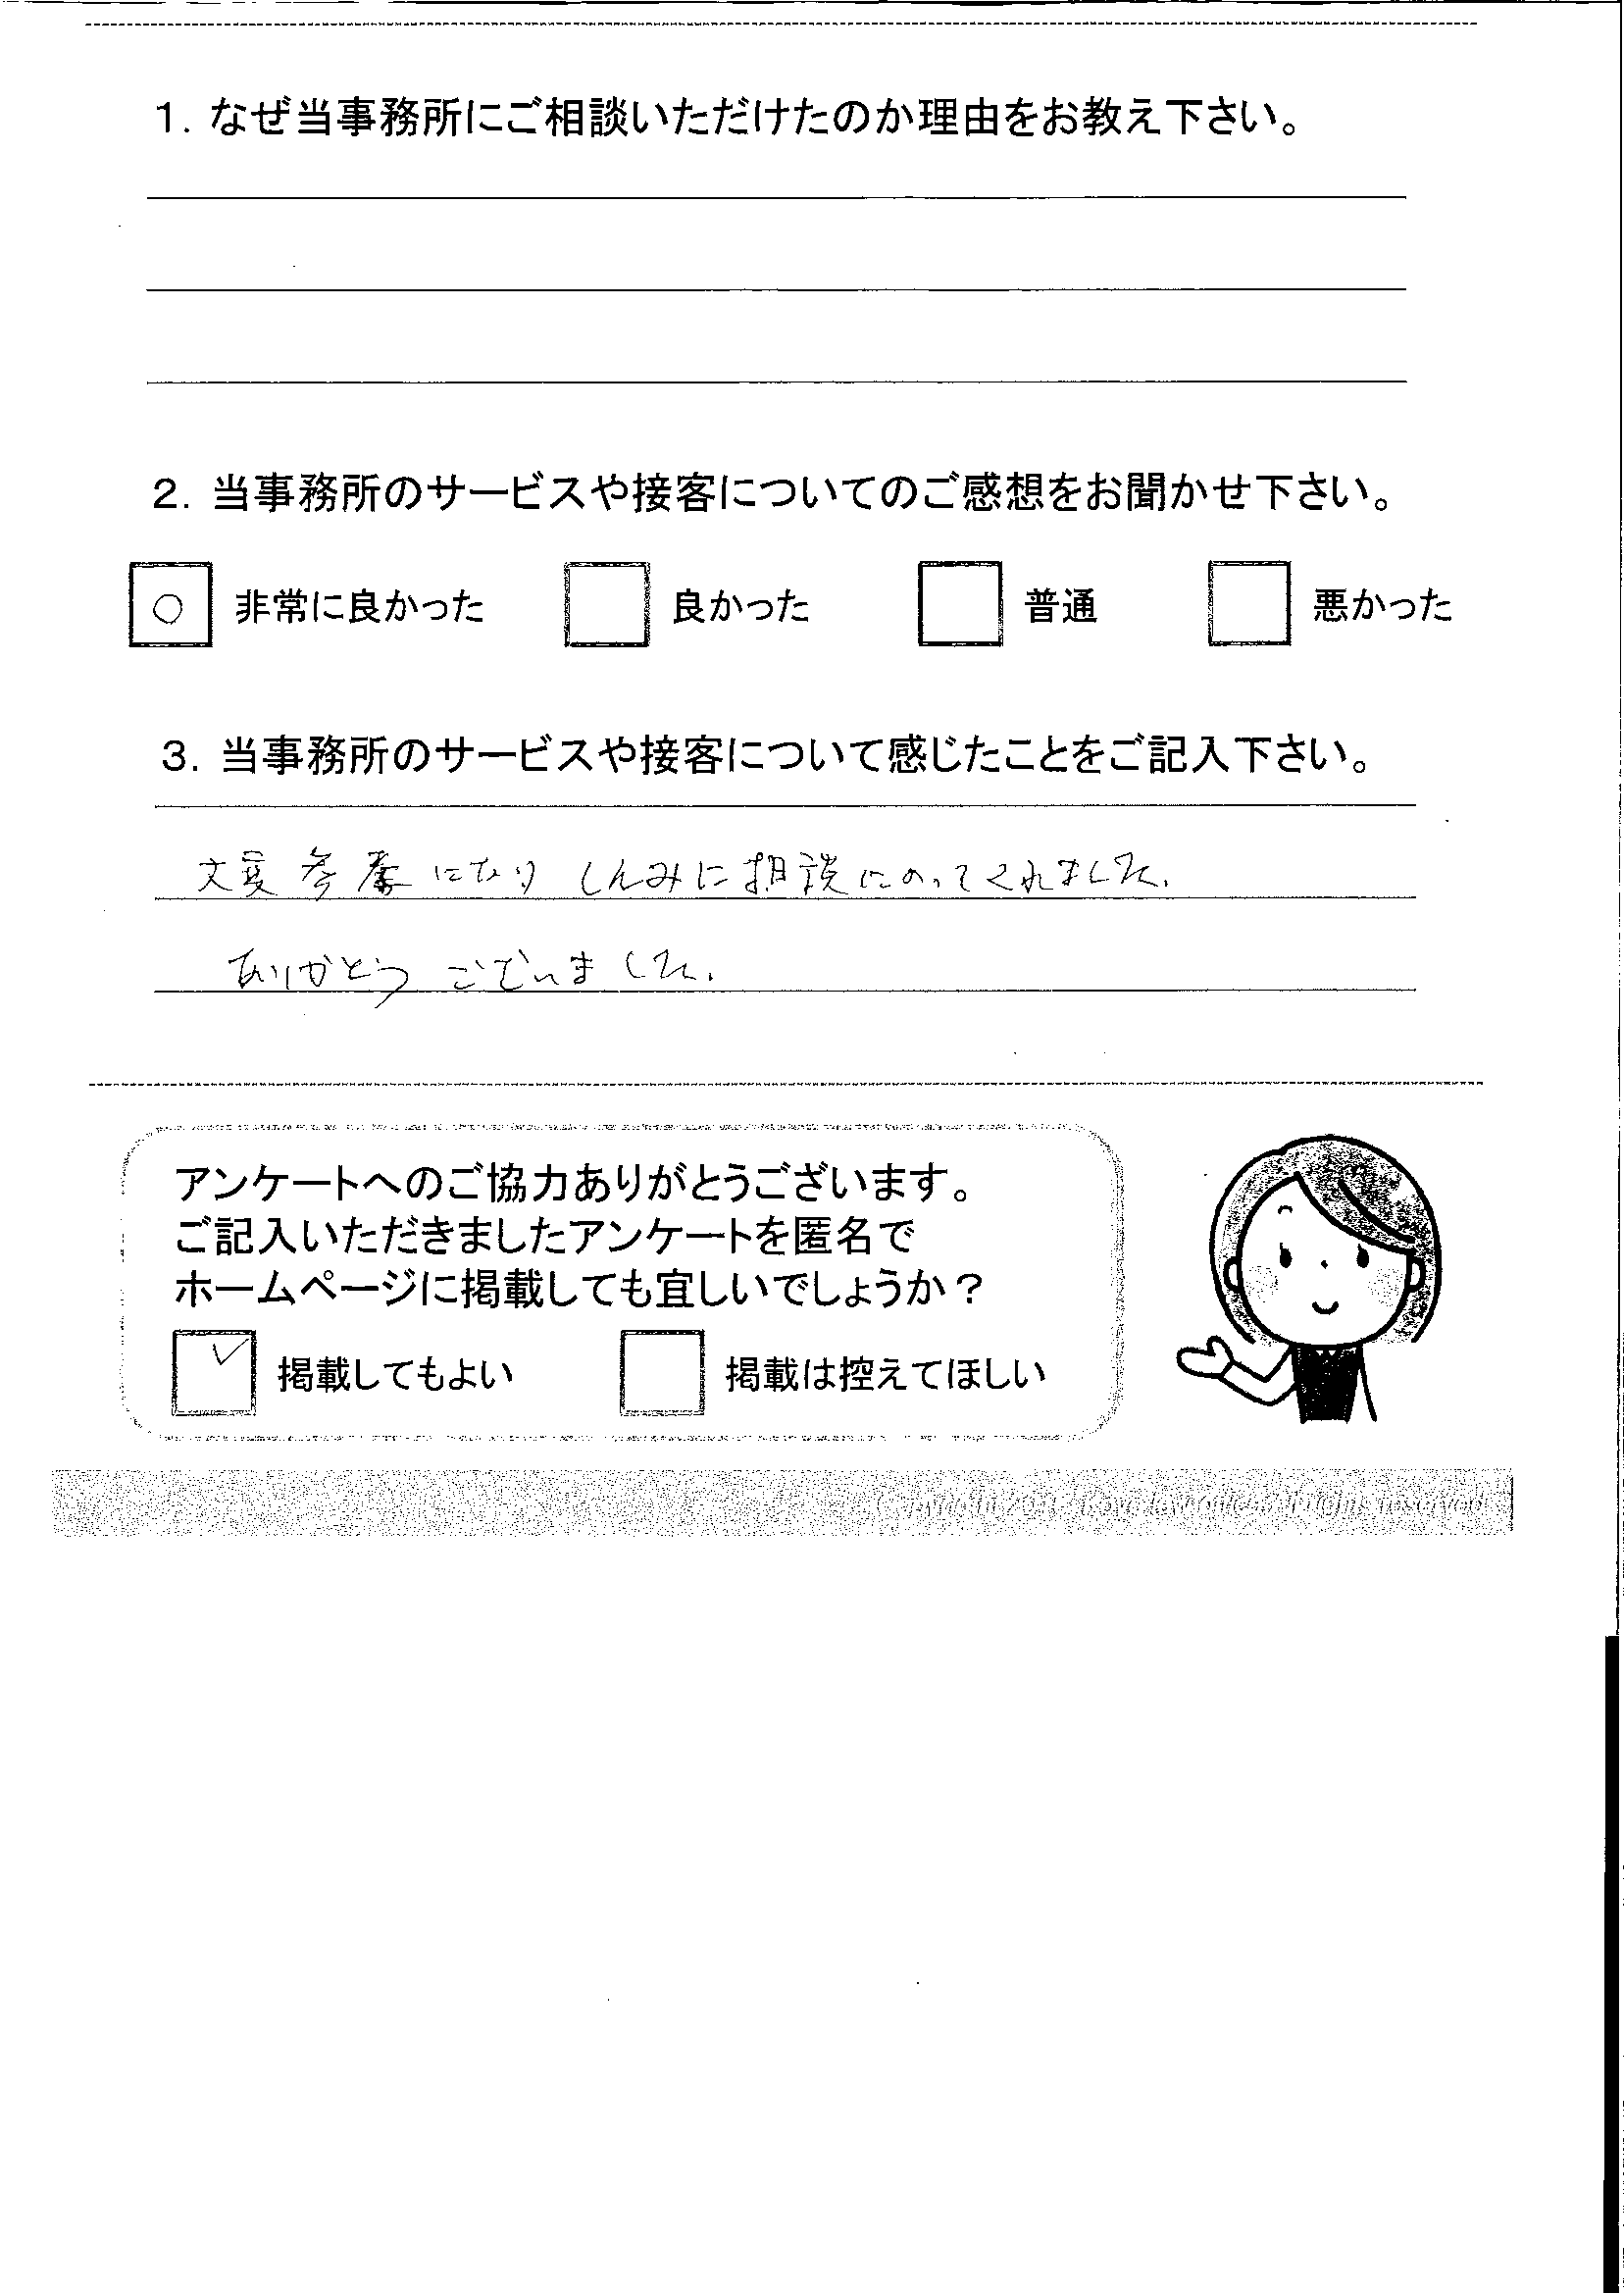 1. なぜ当事務所にご相談いただけたのか理由をお教え下さい。
2. 当事務所のサービスや接客についてのご感想をお聞かせ下さい。
○ 非常に良かった 良かった 普通 悪かった
3. 当事務所のサービスや接客について感じたことをご記入下さい。
大変参考になりしんみに相談にのってくれました.
ありがとうございました.
アンケートへのご協力ありがとうございます。
ご記入いただきましたアンケートを匿名で
ホームページに掲載しても宜しいでしょうか？
✓ 掲載してもよい 掲載は控えてほしい
rights reserved